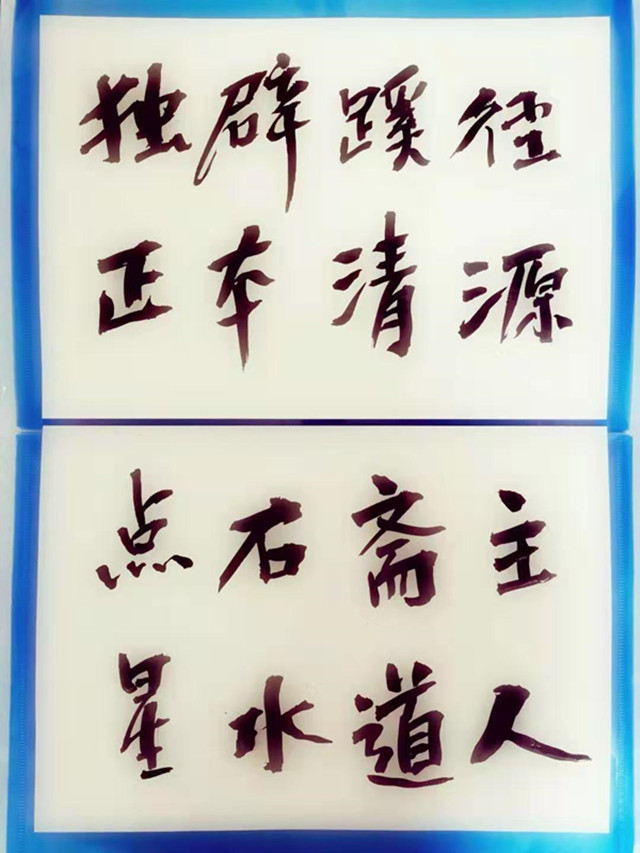 独辟蹊径
正本清源
点石斋主
星水道人